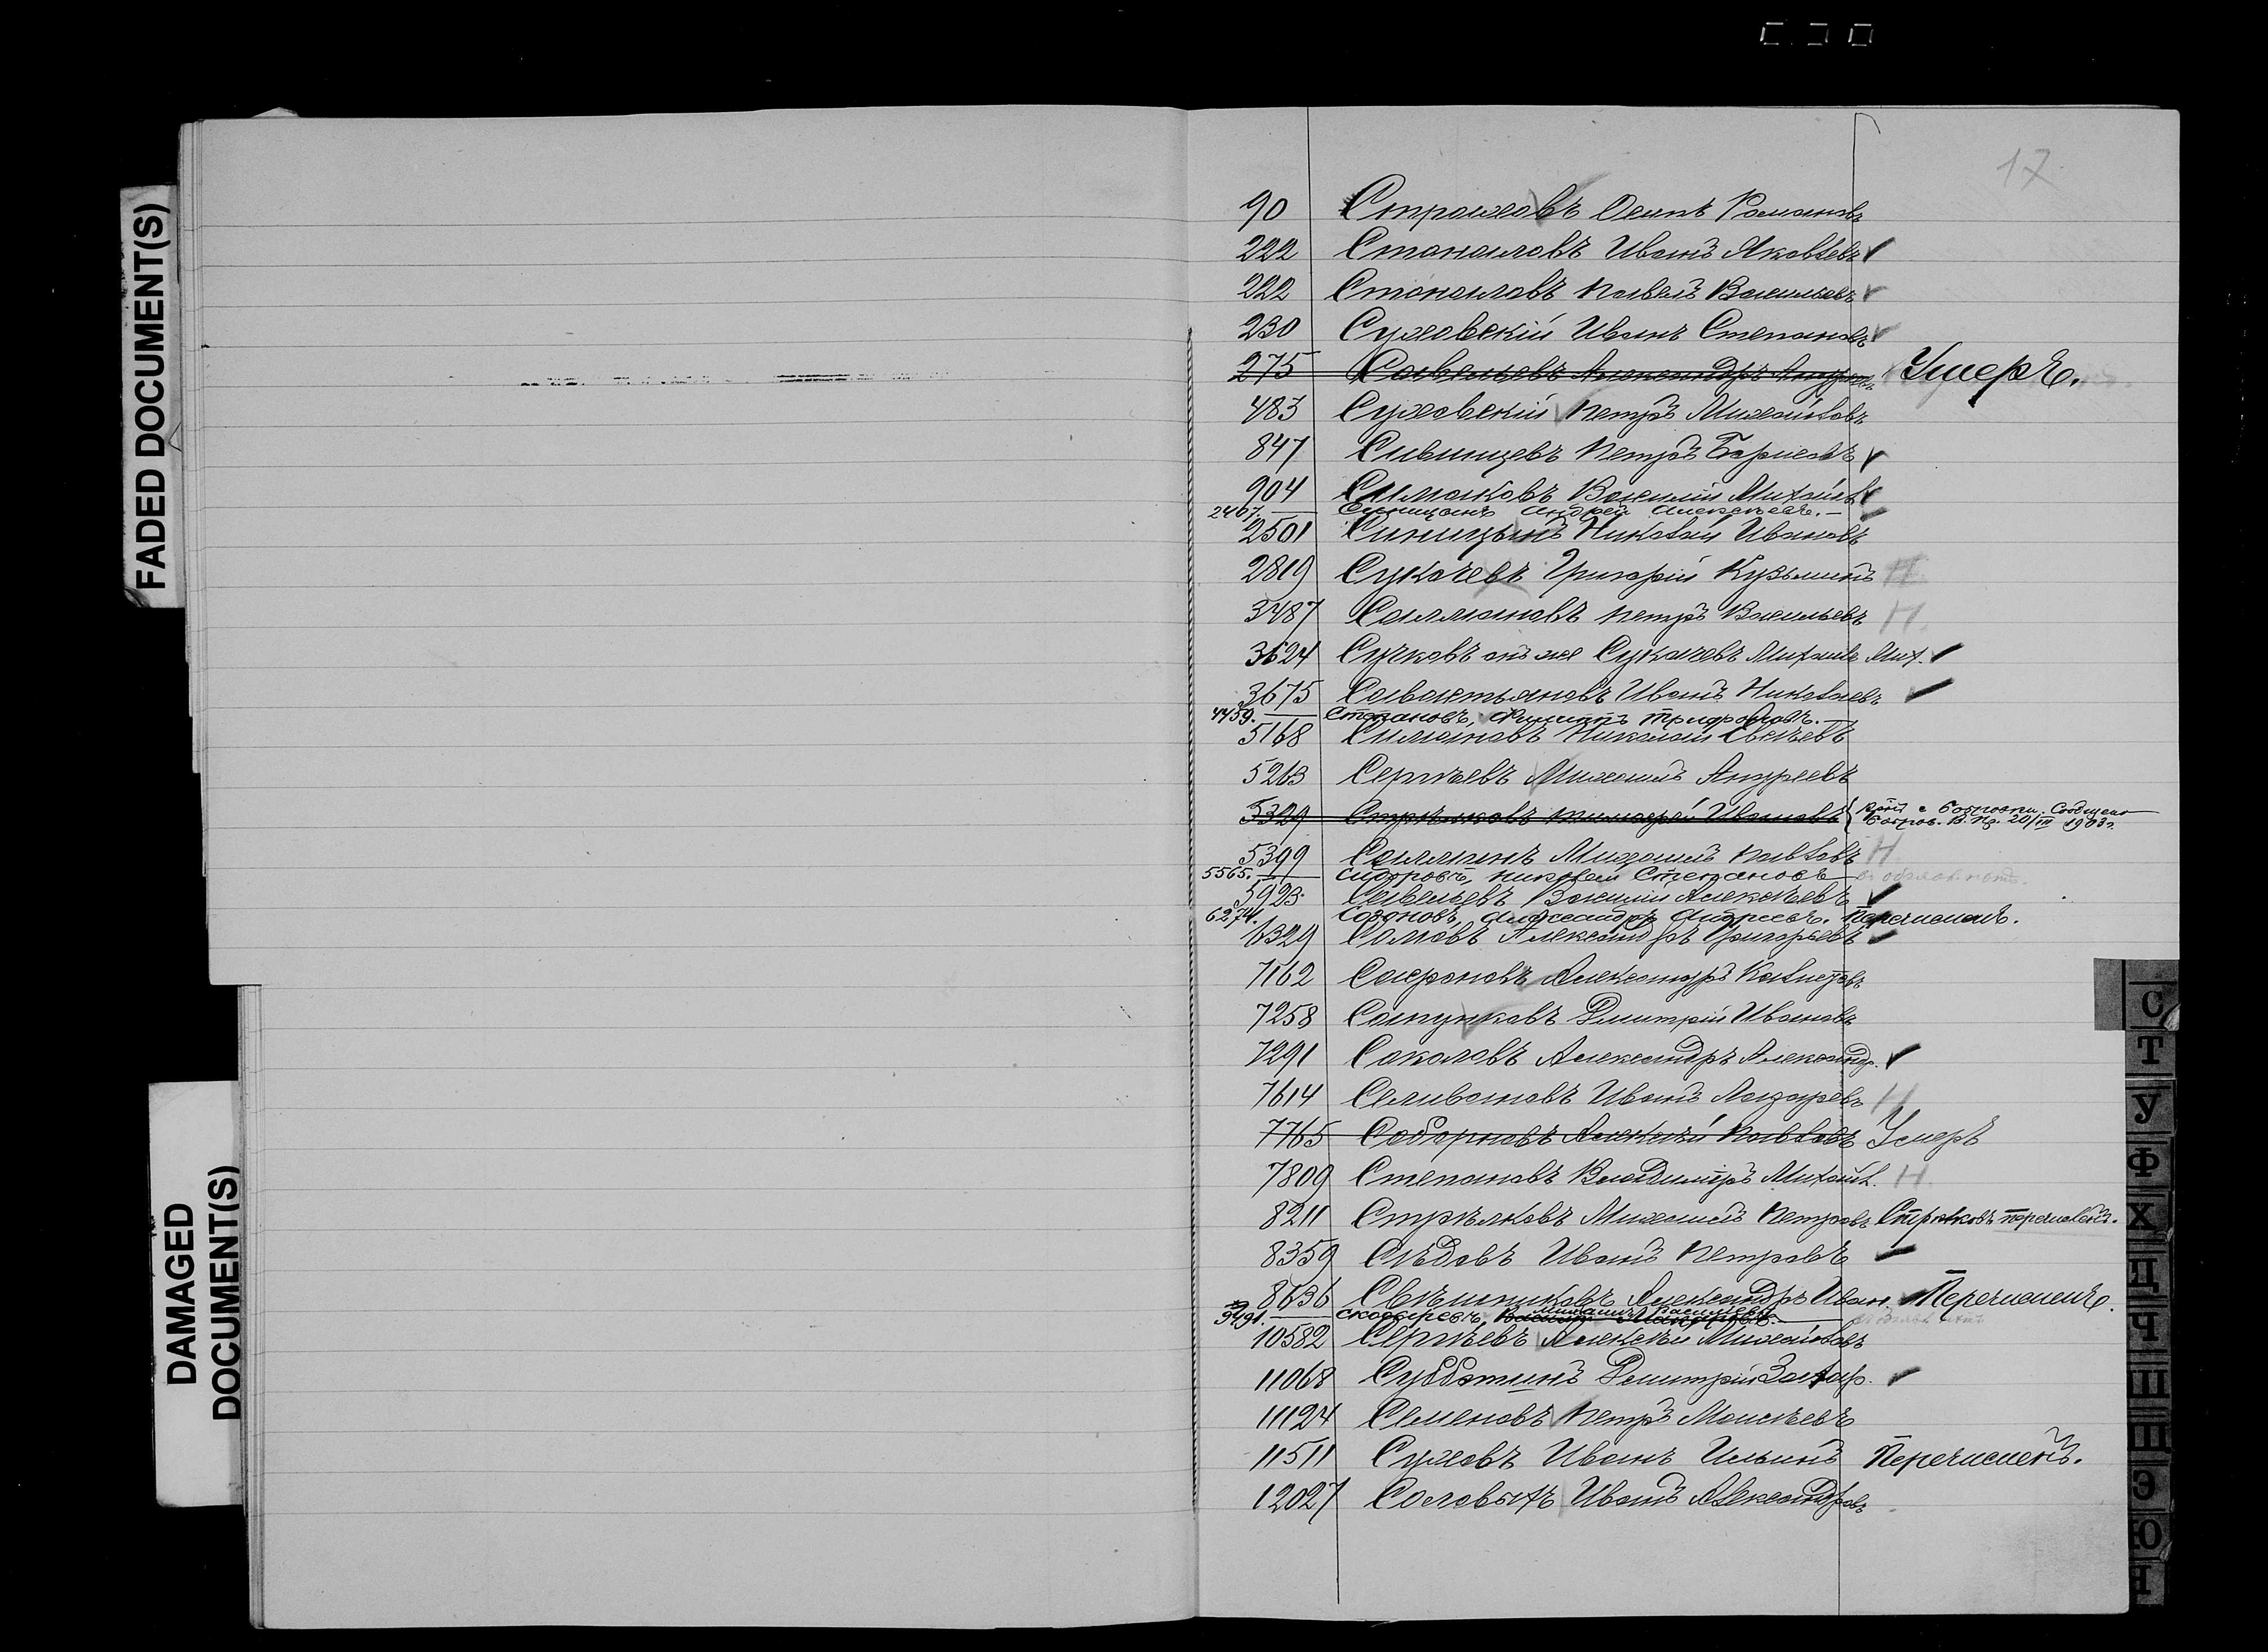 FADED DOCUMENT(S)
DAMAGED
DOCUMENT(S)
17
90 Страховъ Осипъ Романовъ
222 Станаиловъ Иванъ Яковлевъ
222 Станаиловъ Павелъ Васильевъ
230 Суховскій Иванъ Степановъ
275 Савельевъ Александръ Умеръ.
483 Суховскій Петръ Михайловъ
847 Сивинцевъ Петръ Борисовъ
904 Симаковъ Василій Михайл
2467. Синицынъ Андрей Алексѣевъ.
2501 Синицынъ Николай Ивановъ
2819 Сукачевъ Григорій Кузьминъ Н.
3487 Саллмановъ Петръ Васильевъ Н.
3624 Сучковъ онъ же Сукачевъ Михаилъ Мих.
3675 Савастьяновъ Иванъ Николаевъ
4459. Степановъ, Филиппъ
5168 Симановъ Николай
5263 Сергѣевъ Михаилъ Андреевъ
5329 Стрѣлковъ Тимофей Ивановъ Сообщено
20/III 1903 г.
5399 Саллминъ Михаилъ Павловъ Н
5565. Сидоровъ, Николай Степановъ
5923 Савельевъ Василій Алексѣевъ
6274. Созоновъ, Александръ Андреевъ. Перечисленъ.
6329 Сомовъ Александръ Григорьевъ
7162 Сафроновъ Александръ
7258 Сапунковъ Дмитрій Ивановъ
7291 Соколовъ Александръ Александр.
7614 Селивановъ Иванъ Лазаревъ Н
7765 Соборновъ Алексѣй Павловъ Умеръ
7809 Степановъ Владиміръ Михайл. Н
8211 Стрѣлковъ Михаилъ Петровъ Стрѣлковъ перечисленъ.
8359 Сѣдовъ Иванъ Петровъ
8636 Свѣшниковъ Александръ Иван. Перечисленъ.
9491. Скосыревъ, Михаилъ Василіевъ
10582 Сергѣевъ Алексѣй Михайловъ
11068 Субботинъ Дмитрій Захар.
11124 Семеновъ Петръ Моисѣевъ
11511 Суховъ Иванъ Ильинъ Перечисленъ.
12027 Соловыхъ Иванъ Александровъ
С
Т
У
Ф
Х
Ц
Ч
Ш
Щ
Э
Ю